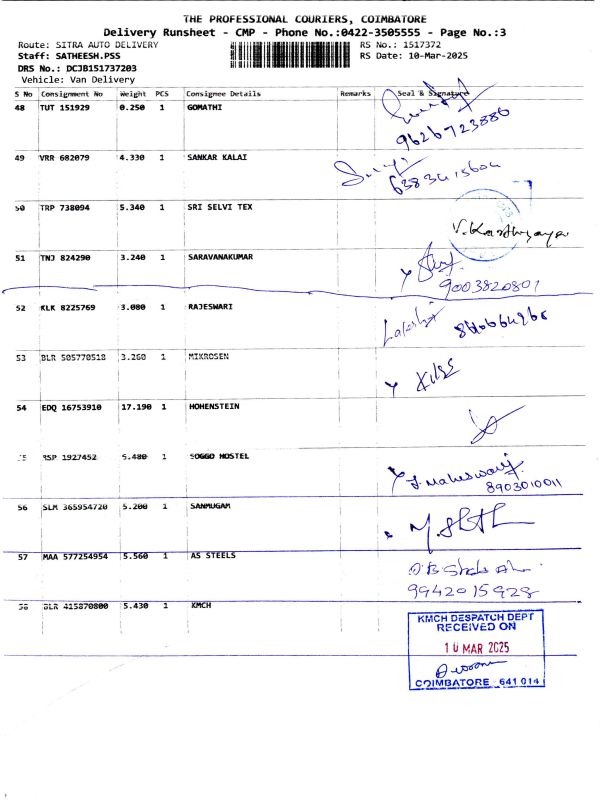 THE PROFESSIONAL COURIERS, COIMBATORE
Delivery Runsheet - CMP - Phone No.:0422-3505555 - Page No.:3
Route: SITRA AUTO DELIVERY RS No.: 1517372
Staff: SATHEESH.PSS RS Date: 10-Mar-2025
DRS No.: DCJB151737203
Vehicle: Van Delivery
S No Consignment No Weight PCS Consignee Details Remarks Seal & Signature
48 TUT 151929 0.250 1 GOMATHI
9626723886
49 VRR 682079 4.330 1 SANKAR KALAI
50 TRP 738094 5.340 1 SRI SELVI TEX
51 TNJ 824290 3.240 1 SARAVANAKUMAR
9003820801
52 KLK 8225769 3.080 1 RAJESWARI
53 BLR 505770518 3.260 1 MIKROSEN
54 EDQ 16753910 17.190 1 HOHENSTEIN
RSP 1927452 5.480 1 SOGGO HOSTEL
J. Maheswari
8903010011
56 SLM 365954720 5.200 1 SANMUGAM
57 MAA 577254954 5.560 1 AS STEELS
9942015928
58 BLR 415870800 5.430 1 KMCH
KMCH DESPATCH DEPT
RECEIVED ON
10 MAR 2025
COIMBATORE - 641 014